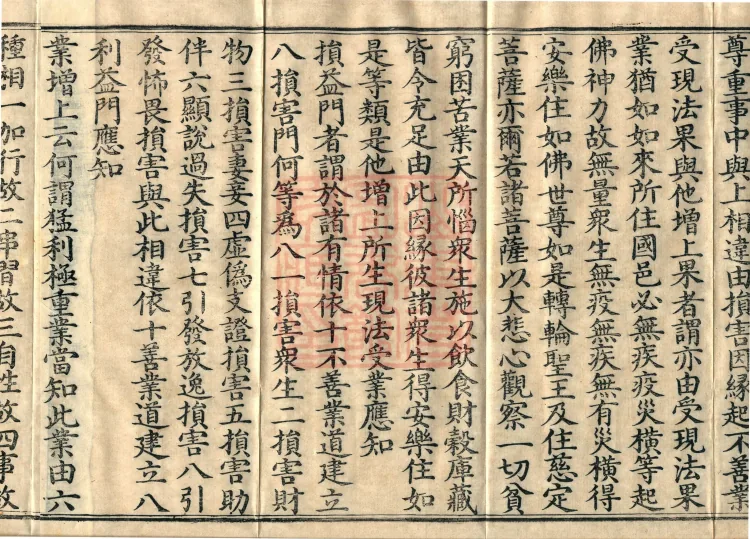 尊重事中與上相違由損害因緣起不善業
受現法果與他增上果者謂亦由受現法果
業猶如如來所住國邑必無疾疫災橫等起
佛神力故無量衆生無疫無疾無有災橫得
安樂住如佛世尊如是轉輪聖王及住慈定
菩薩亦爾若諸菩薩以大悲心觀察一切貧
窮困苦業天所惱衆生施以飲食財穀庫藏
皆令充足由此因緣彼諸衆生得安樂住如
是等類是他增上所生現法受業應知
損益門者謂於諸有情依十不善業道建立
八損害門何等爲八一損害衆生二損害財
物三損害妻妾四虛偽友證損害五損害助
伴六顯說過失損害七引發放逸損害八引
發怖畏損害與此相違依十善業道建立八
利益門應知
業增上云何謂猛利極重業當知此業由六
種相一加行故二串習故三自性故四事故